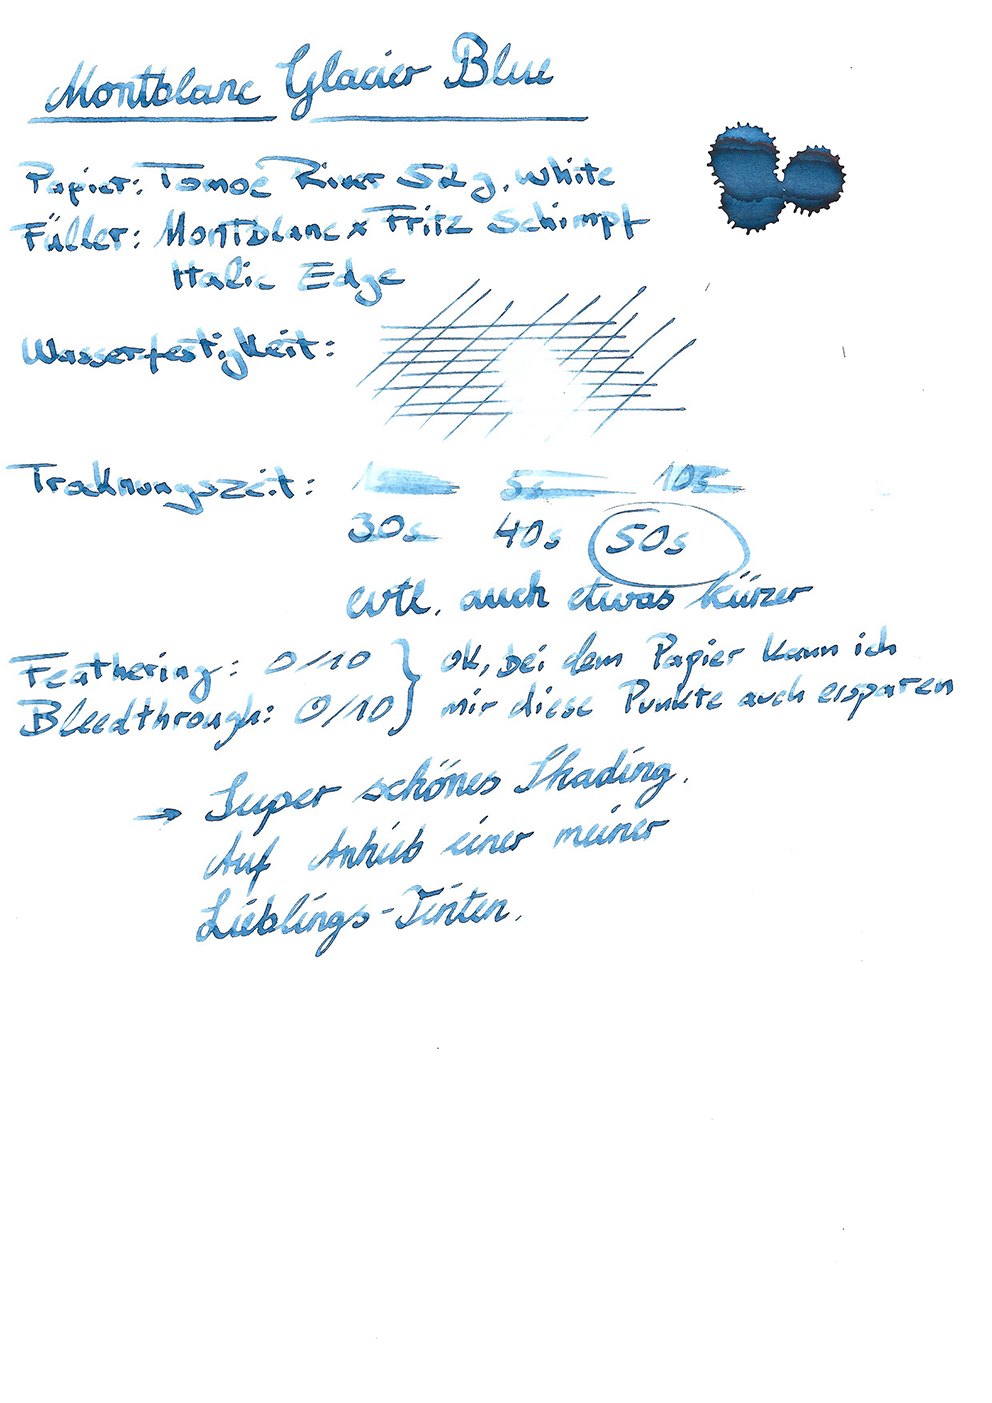 Montblanc Glacier Blue
Papier: Tomoe River 52 g, white
Füller: Montblanc x Fritz Schimpf
Italic Edge
Wasserfestigkeit:
Trocknungszeit: 1s 5s 10s
30s 40s 50s
evtl. auch etwas kürzer
Feathering: 0/10 } ok, bei dem Papier kann ich
Bleedthrough: 0/10 } mir diese Punkte auch ersparen
→ Super schönes Shading.
Auf Anhieb einer meiner
Lieblings-Tinten.